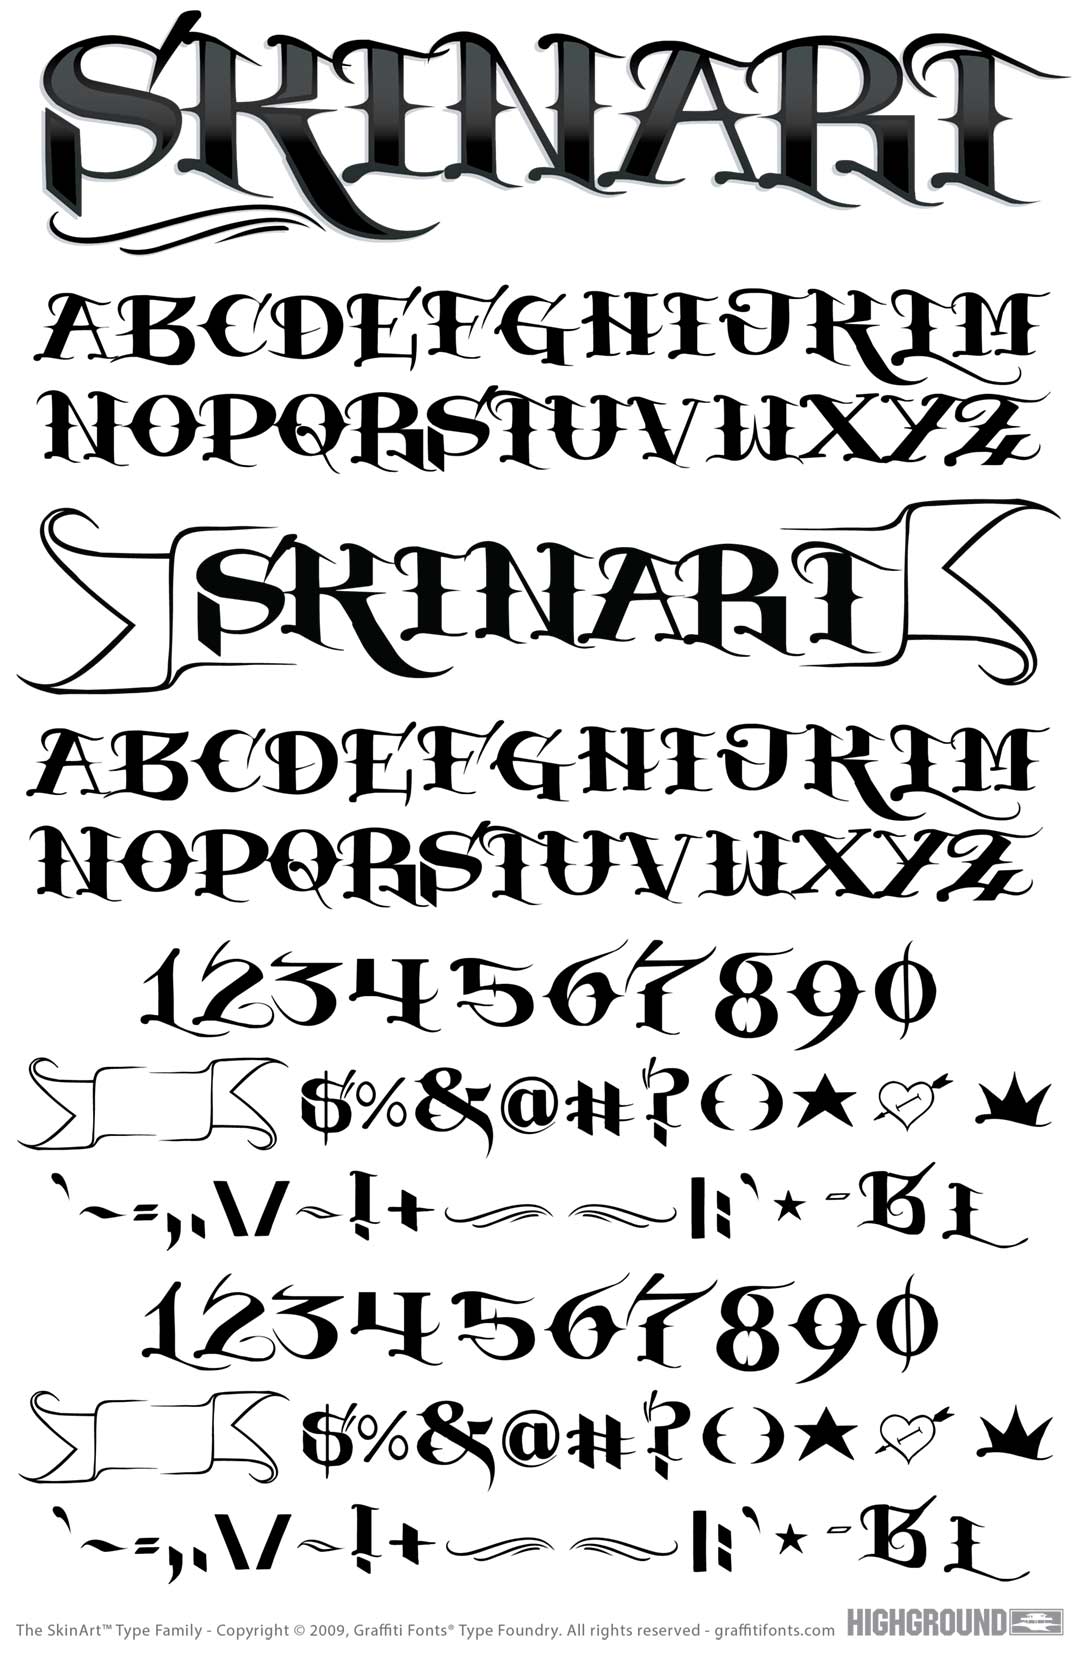 SKINART
ABCDEFGHIJKLM
NOPQRSTUVWXYZ
SKINART
ABCDEFGHIJKLM
NOPQRSTUVWXYZ
1234567890
$%&@#?()★
`~=,.\/~!+|:`★-BL
1234567890
$%&@#?()★
`~=,.\/~!+|:`★-BL
The SkinArt™ Type Family - Copyright © 2009, Graffiti Fonts® Type Foundry. All rights reserved - graffitifonts.com HIGHGROUND